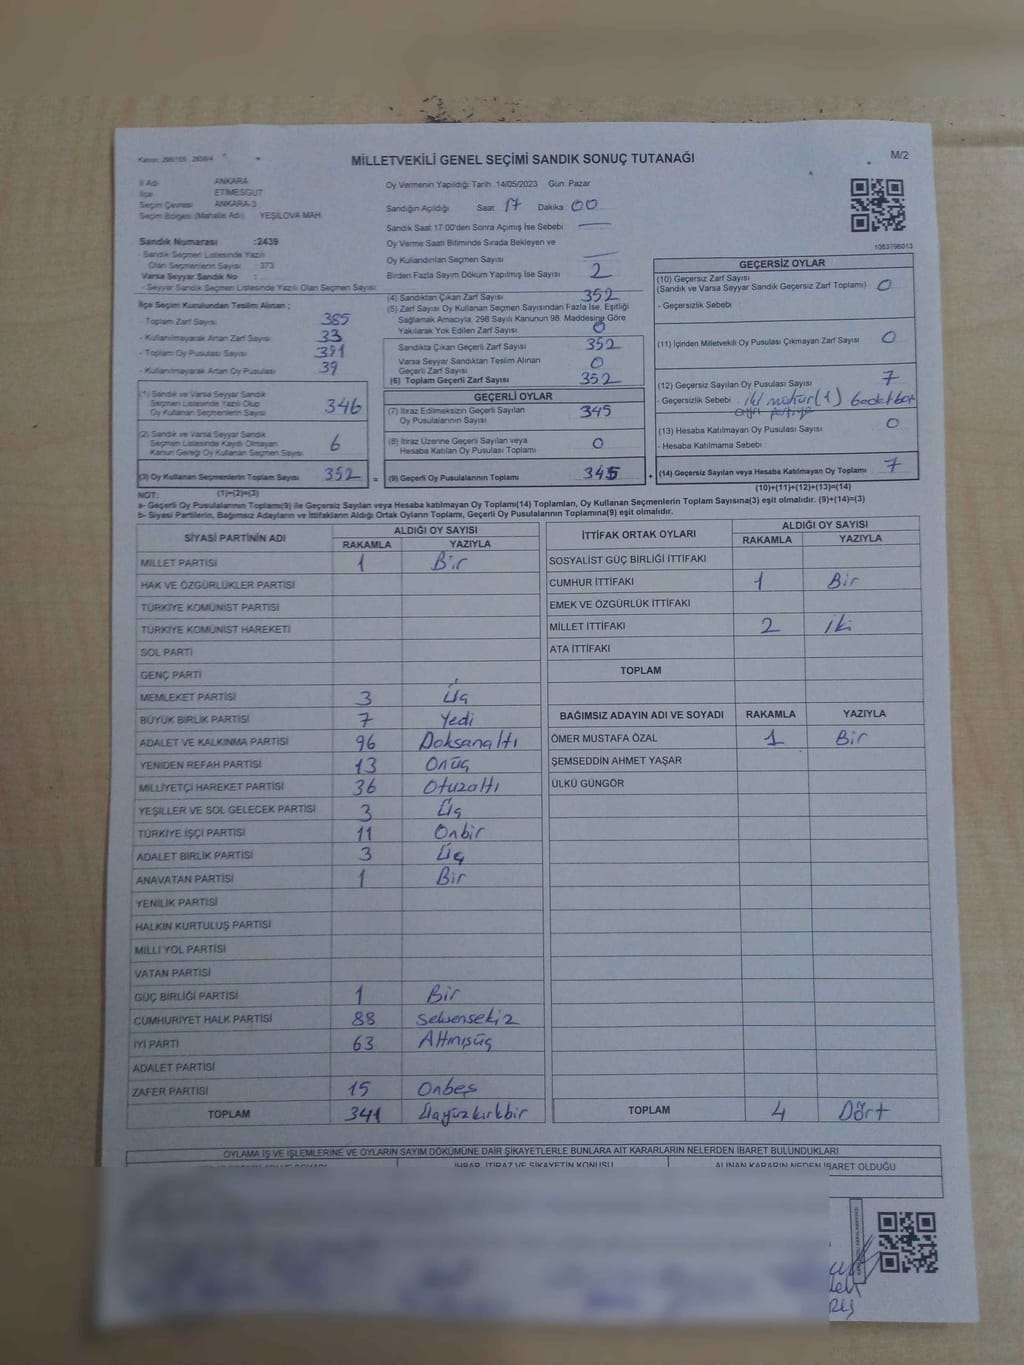 Kanun: 298/105 2839/4
MİLLETVEKİLİ GENEL SEÇİMİ SANDIK SONUÇ TUTANAĞI
M/2
İl Adı : ANKARA
İlçe : ETİMESGUT
Seçim Çevresi : ANKARA-3
Seçim Bölgesi (Mahalle Adı) : YEŞİLOVA MAH.
Oy Vermenin Yapıldığı Tarih :14/05/2023 Gün: Pazar
Sandığın Açıldığı Saat: 17 Dakika: 00
Sandık Saat 17:00'den Sonra Açımış İse Sebebi :
Oy Verme Saati Bitiminde Sırada Bekleyen ve
Oy Kullandırılan Seçmen Sayısı
Birden Fazla Sayım Döküm Yapılmış İse Sayısı 2
1083796013
Sandık Numarası :2439
- Sandık Seçmen Listesinde Yazılı
Olan Seçmenlerin Sayısı : 373
Varsa Seyyar Sandık No :
- Seyyar Sandık Seçmen Listesinde Yazılı Olan Seçmen Sayısı:
İlçe Seçim Kurulundan Teslim Alınan ;
- Toplam Zarf Sayısı 385
- Kullanılmayarak Artan Zarf Sayısı 33
- Toplam Oy Pusulası Sayısı 391
- Kullanılmayarak Artan Oy Pusulası 39
(1) Sandık ve Varsa Seyyar Sandık
Seçmen Listesinde Yazılı Olup
Oy Kullanan Seçmenlerin Sayısı 346
(2) Sandık ve Varsa Seyyar Sandık
Seçmen Listesinde Kayıtlı Olmayan
Kanun Gereği Oy Kullanan Seçmen Sayısı 6
(3) Oy Kullanan Seçmenlerin Toplam Sayısı 352
(1)+(2)=(3)
(4) Sandıktan Çıkan Zarf Sayısı 352
(5) Zarf Sayısı Oy Kullanan Seçmen Sayısından Fazla İse, Eşitliği
Sağlamak Amacıyla; 298 Sayılı Kanunun 98. Maddesine Göre
Yakılarak Yok Edilen Zarf Sayısı 0
Sandıkta Çıkan Geçerli Zarf Sayısı 352
Varsa Seyyar Sandıktan Teslim Alınan
Geçerli Zarf Sayısı 0
(6) Toplam Geçerli Zarf Sayısı 352
GEÇERLİ OYLAR
(7) İtiraz Edilmeksizin Geçerli Sayılan
Oy Pusulalarının Sayısı 345
(8) İtiraz Üzerine Geçerli Sayılan veya
Hesaba Katılan Oy Pusulası Toplamı 0
= (9) Geçerli Oy Pusulalarının Toplamı 345 +
GEÇERSİZ OYLAR
(10) Geçersiz Zarf Sayısı
(Sandık ve Varsa Seyyar Sandık Geçersiz Zarf Toplamı) 0
- Geçersizlik Sebebi :
(11) İçinden Milletvekili Oy Pusulası Çıkmayan Zarf Sayısı 0
(12) Geçersiz Sayılan Oy Pusulası Sayısı 7
- Geçersizlik Sebebi : iki mühür (1)
ayrı partiye
(13) Hesaba Katılmayan Oy Pusulası Sayısı 0
- Hesaba Katılmama Sebebi :
(14) Geçersiz Sayılan veya Hesaba Katılmayan Oy Toplamı 7
(10)+(11)+(12)+(13)=(14)
NOT:
a- Geçerli Oy Pusulalarının Toplamı(9) ile Geçersiz Sayılan veya Hesaba katılmayan Oy Toplamı(14) Toplamları, Oy Kullanan Seçmenlerin Toplam Sayısına(3) eşit olmalıdır. (9)+(14)=(3)
b- Siyasi Partilerin, Bağımsız Adayların ve İttifakların Aldığı Ortak Oyların Toplamı, Geçerli Oy Pusulalarının Toplamına(9) eşit olmalıdır.
SİYASİ PARTİNİN ADI ALDIĞI OY SAYISI
RAKAMLA YAZIYLA
MİLLET PARTİSİ 1 Bir
HAK VE ÖZGÜRLÜKLER PARTİSİ
TÜRKİYE KOMÜNİST PARTİSİ
TÜRKİYE KOMÜNİST HAREKETİ
SOL PARTİ
GENÇ PARTİ
MEMLEKET PARTİSİ 3 Üç
BÜYÜK BİRLİK PARTİSİ 7 Yedi
ADALET VE KALKINMA PARTİSİ 96 Doksanaltı
YENİDEN REFAH PARTİSİ 13 Onüç
MİLLİYETÇİ HAREKET PARTİSİ 36 Otuzaltı
YEŞİLLER VE SOL GELECEK PARTİSİ 3 Üç
TÜRKİYE İŞÇİ PARTİSİ 11 Onbir
ADALET BİRLİK PARTİSİ 3 Üç
ANAVATAN PARTİSİ 1 Bir
YENİLİK PARTİSİ
HALKIN KURTULUŞ PARTİSİ
MİLLİ YOL PARTİSİ
VATAN PARTİSİ
GÜÇ BİRLİĞİ PARTİSİ 1 Bir
CUMHURİYET HALK PARTİSİ 88 Seksensekiz
İYİ PARTİ 63 Altmışüç
ADALET PARTİSİ
ZAFER PARTİSİ 15 Onbeş
TOPLAM 341 Üçyüzkırkbir
İTTİFAK ORTAK OYLARI ALDIĞI OY SAYISI
RAKAMLA YAZIYLA
SOSYALİST GÜÇ BİRLİĞİ İTTİFAKI
CUMHUR İTTİFAKI 1 Bir
EMEK VE ÖZGÜRLÜK İTTİFAKI
MİLLET İTTİFAKI 2 İki
ATA İTTİFAKI
TOPLAM
BAĞIMSIZ ADAYIN ADI VE SOYADI RAKAMLA YAZIYLA
ÖMER MUSTAFA ÖZAL 1 Bir
ŞEMSEDDİN AHMET YAŞAR
ÜLKÜ GÜNGÖR
TOPLAM 4 Dört
OYLAMA İŞ VE İŞLEMLERİNE VE OYLARIN SAYIM DÖKÜMÜNE DAİR ŞİKAYETLERLE BUNLARA AİT KARARLARIN NELERDEN İBARET BULUNDUKLARI
İHBAR, İTİRAZ VE ŞİKAYETİN KONUSU ALINAN KARARIN NEDEN İBARET OLDUĞU